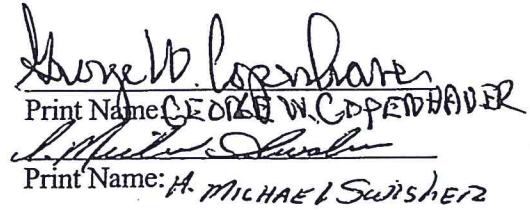 George W. Copenhaver
Print Name: GEORGE W. COPENHAVER
A. Michael Swisher
Print Name: A. MICHAEL SWISHER